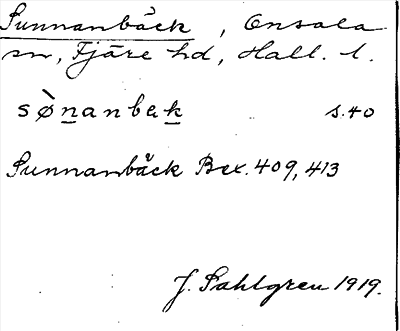 Sunnanbäck, Onsala
sn, Fjäre hd, Hall. l.
sø̀nanbak s.40
Sunnanbäck Bex. 409, 413
J. Sahlgren 1919.